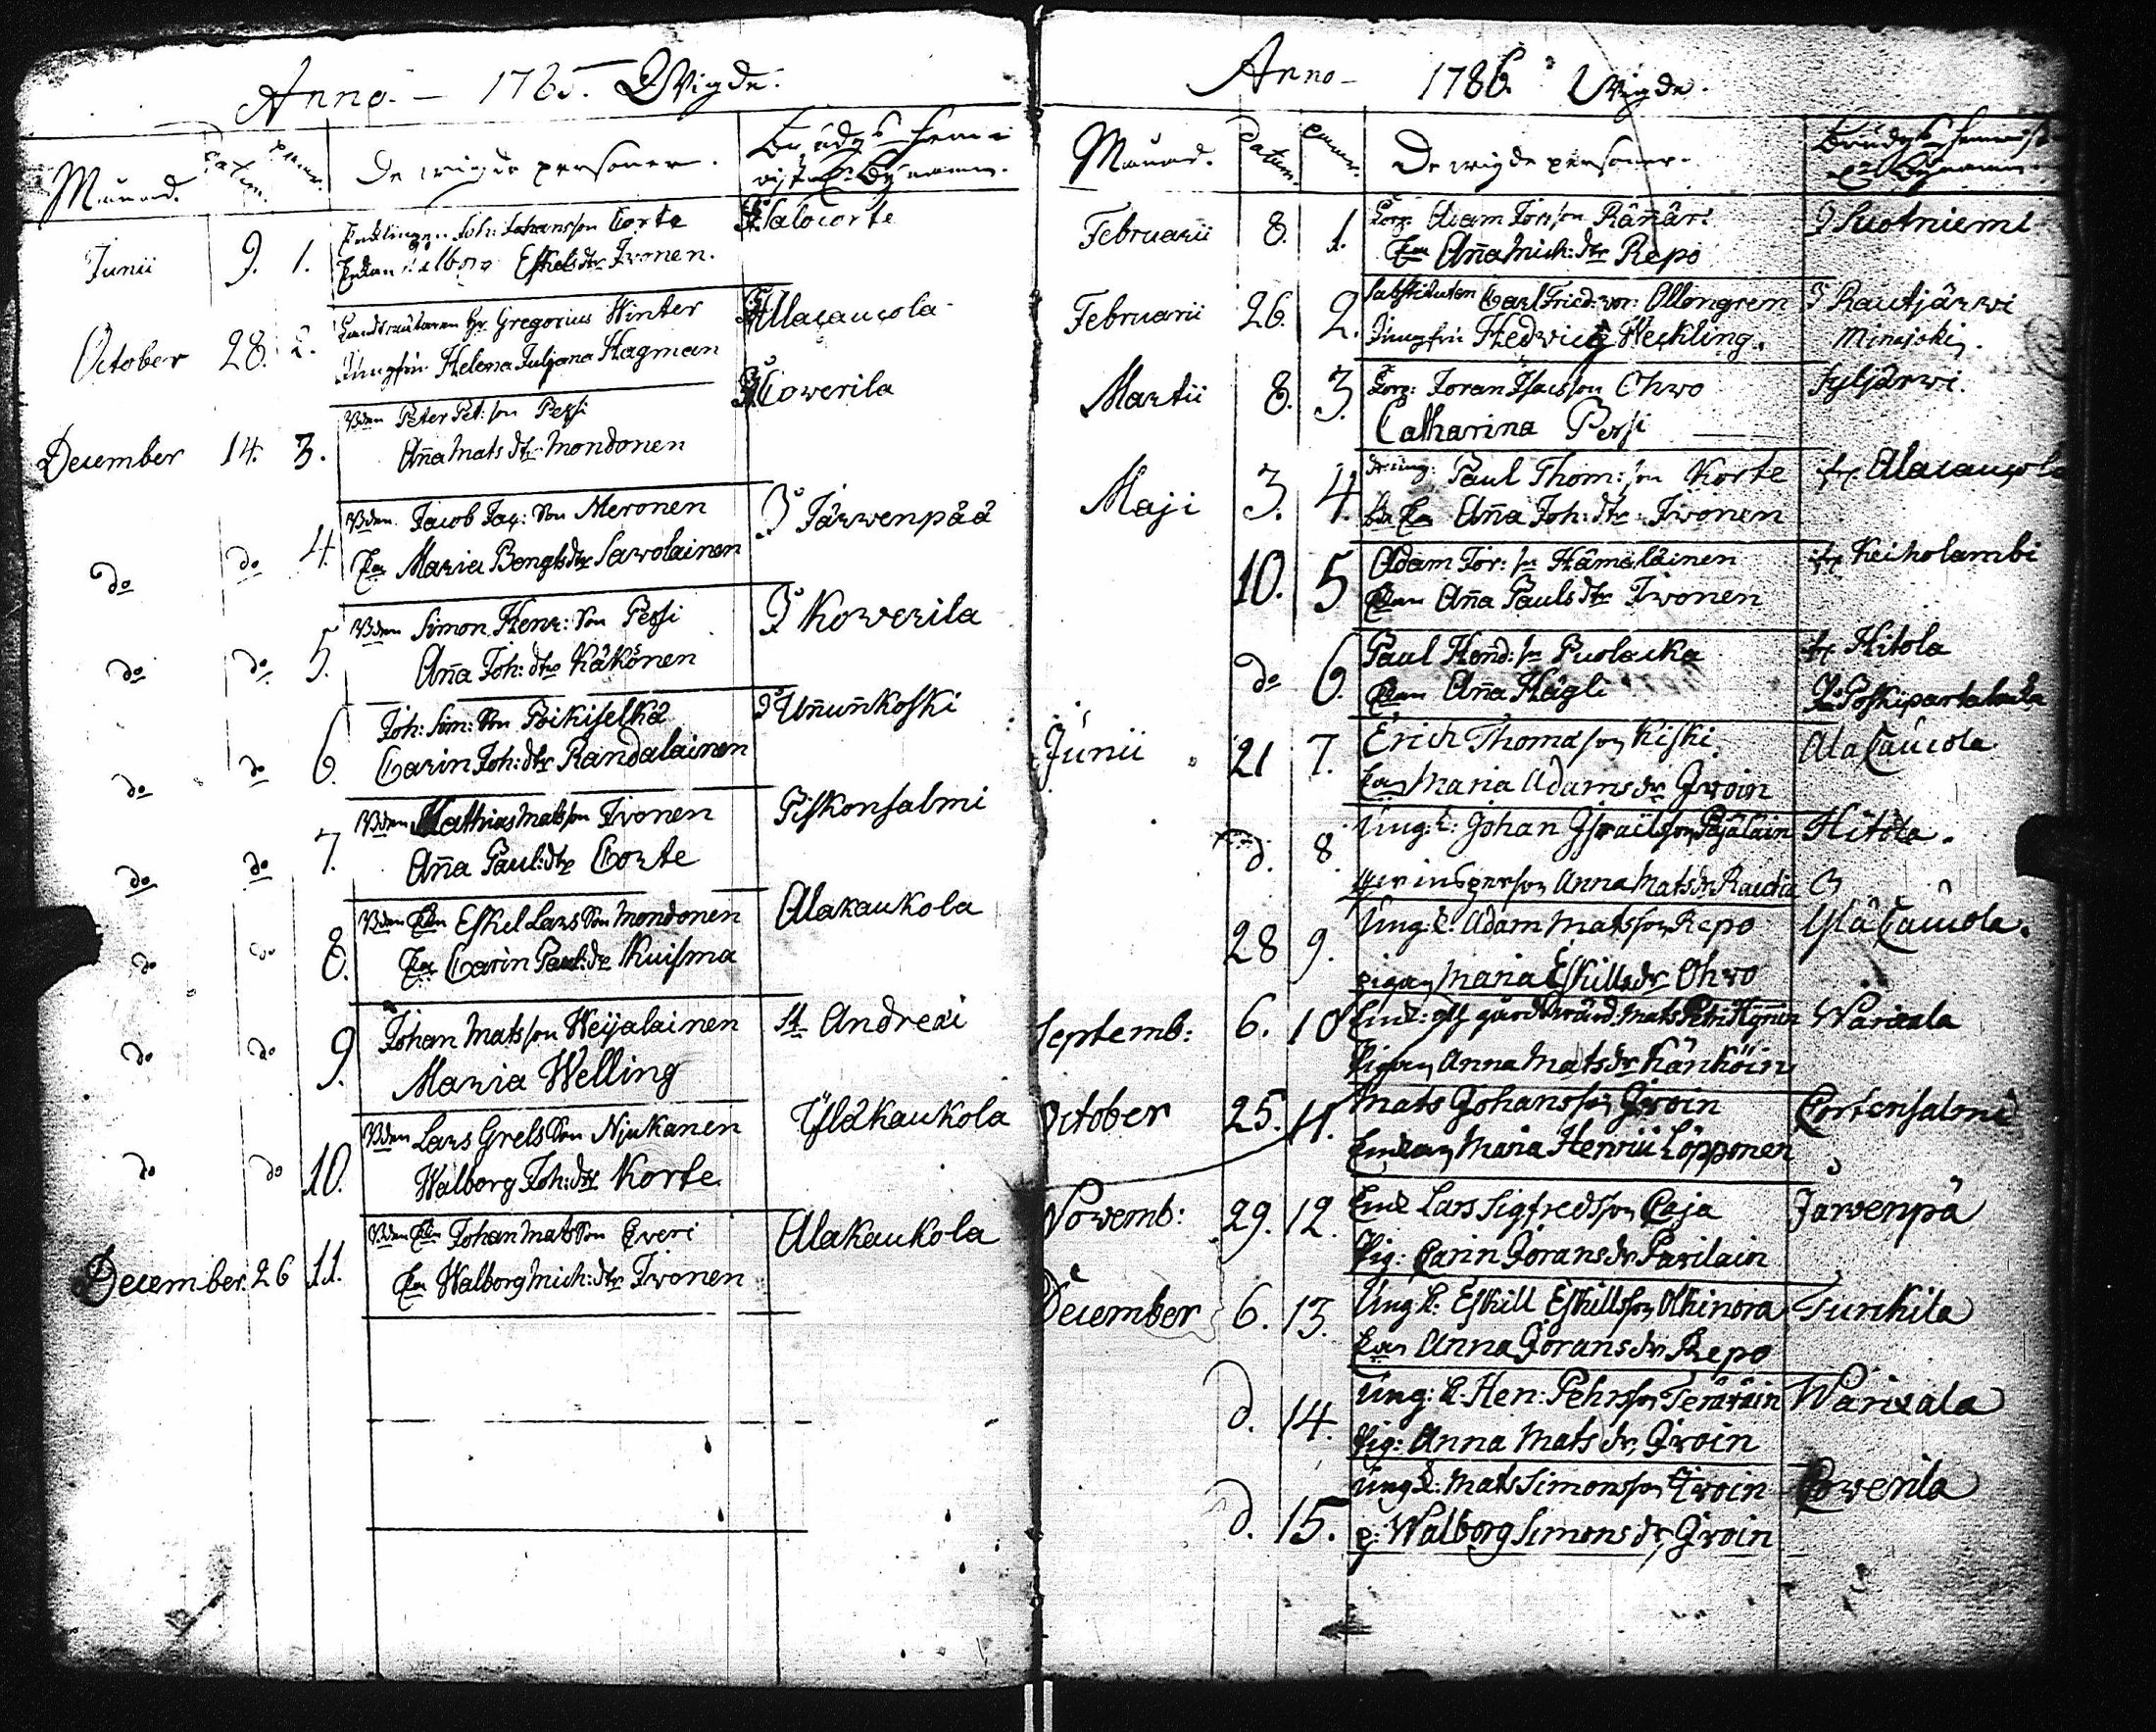 Anno - 1785. Wigde.
Månad. Datum. Numer. De wigde personer.
Junii 9. 1. Enklingen Joh: Johansson Corte
Enkan Walborg Eskelsdtr Ivonen.
Salocorte
October 28. 2. Hr. Gregorius Winter
Jungfru Helena Juljana Hagman
Allacaucola
December 14. 3. Peter Pet: son Pessi
Anna Mats dtr Mondonen
Cowerila
do do 4. Jacob Jac: Son Meronen
Maria Bengtsdtr Savolainen
Järwenpää
do do 5. Simon Henr: Son Pessi
Anna Joh: dtr Käkönen
Kowerila
do do 6. Joh: Sim: Son Poikiselkä
Carin Joh: dtr Randalainen
Unnunkoski
do do 7. Mathias Matsson Ivonen
Anna Paul: dtr Corte
Piskonsalmi
do do 8. Eskel Lars Son Mondonen
Carin Paul: dr Kuisma
Alakaukola
do do 9. Johan Matsson Weijalainen
Maria Welling
St Andreæi
do do 10. Lars Grels Son Njukanen
Walborg Joh: dtr Korte
Yläkaukola
December. 26 11. Johan Mats Son Qveri
Walborg Mich: dtr Ivonen
Alakaukola
Anno - 1786. Wigde.
Månad. Datum. Numer. De wigde personer.
Februarii 8. 1. Adam Jörsson Ränäri
Anna Mich: dtr Repo
Suotniemi
Februarii 26. 2. Substituten Carl Fried: von: Ollongren
Jungfru Hedwieg Weckling.
Rautjärwi
Martii 8. 3. Joran Isacsson Ohwo
Catharina Pessi
Syljärwi.
Maji 3. 4. Paul Thom: son Korte
Anna Joh: dtr: Ivonen
Alacaucola
10. 5 Adam Jör: sn Hämäläinen
Enkan Anna Pauls dtr Ivonen
Keiholambi
do 6. Paul Hend: sn Puolacka
Enkan Anna Hägli
Hitola
Junii 21 7. Erich Thomasson Kiski
Maria Adams dr Ivoin
Ala Caucola
d. 8. Ung: k: Johan Pajalain
Anna Mats dr
Hitola.
28 9. Ung: k. Adam Matsson Repo
pigan Maria Eskills dr Ohwo
Ylä Caucola.
Septemb: 6. 10 Mats
Pigan Anna Mats dr Känköin
Waricala
October 25. 11. Mats Johansson Ivoin
Enkan Maria Henrici Löpponen
Cortensalmi
Novemb: 29. 12. Enk Lars Sigfredsson Paja
Pig: Carin Görans dr Parilain
Jarwenpä
December 6. 13. Ung k: Eskill Eskillsson Olkinora
Anna Görans dr Repo
Turckila
d. 14. Ung: k. Hen: Pehrsson Teräväin
Pig: Anna Mats dr Ivoin
Waricala
d. 15. Ung k: Mats Simonsson Ivoin
p: Walborg Simons dr Ivoin
Cowerila